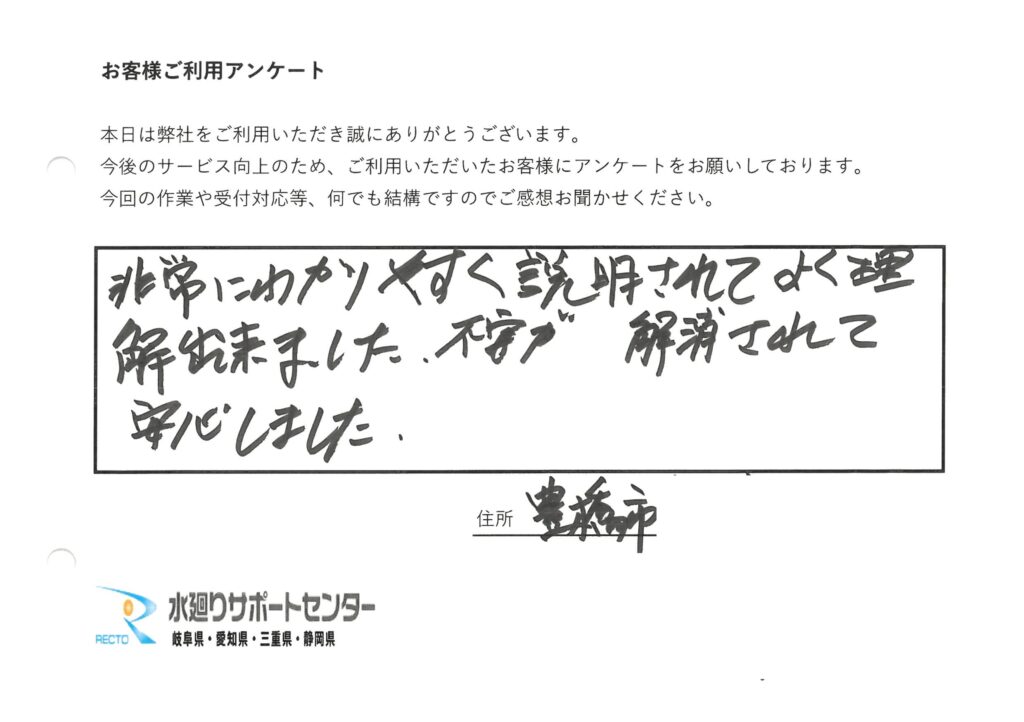 お客様ご利用アンケート
本日は弊社をご利用いただき誠にありがとうございます。
今後のサービス向上のため、ご利用いただいたお客様にアンケートをお願いしております。
今回の作業や受付対応等、何でも結構ですのでご感想お聞かせください。
非常にわかりやすく説明されてよく理
解出来ました.不安が 解消されて
安心しました.
住所 豊橋市
RECTO 水廻りサポートセンター
岐阜県・愛知県・三重県・静岡県